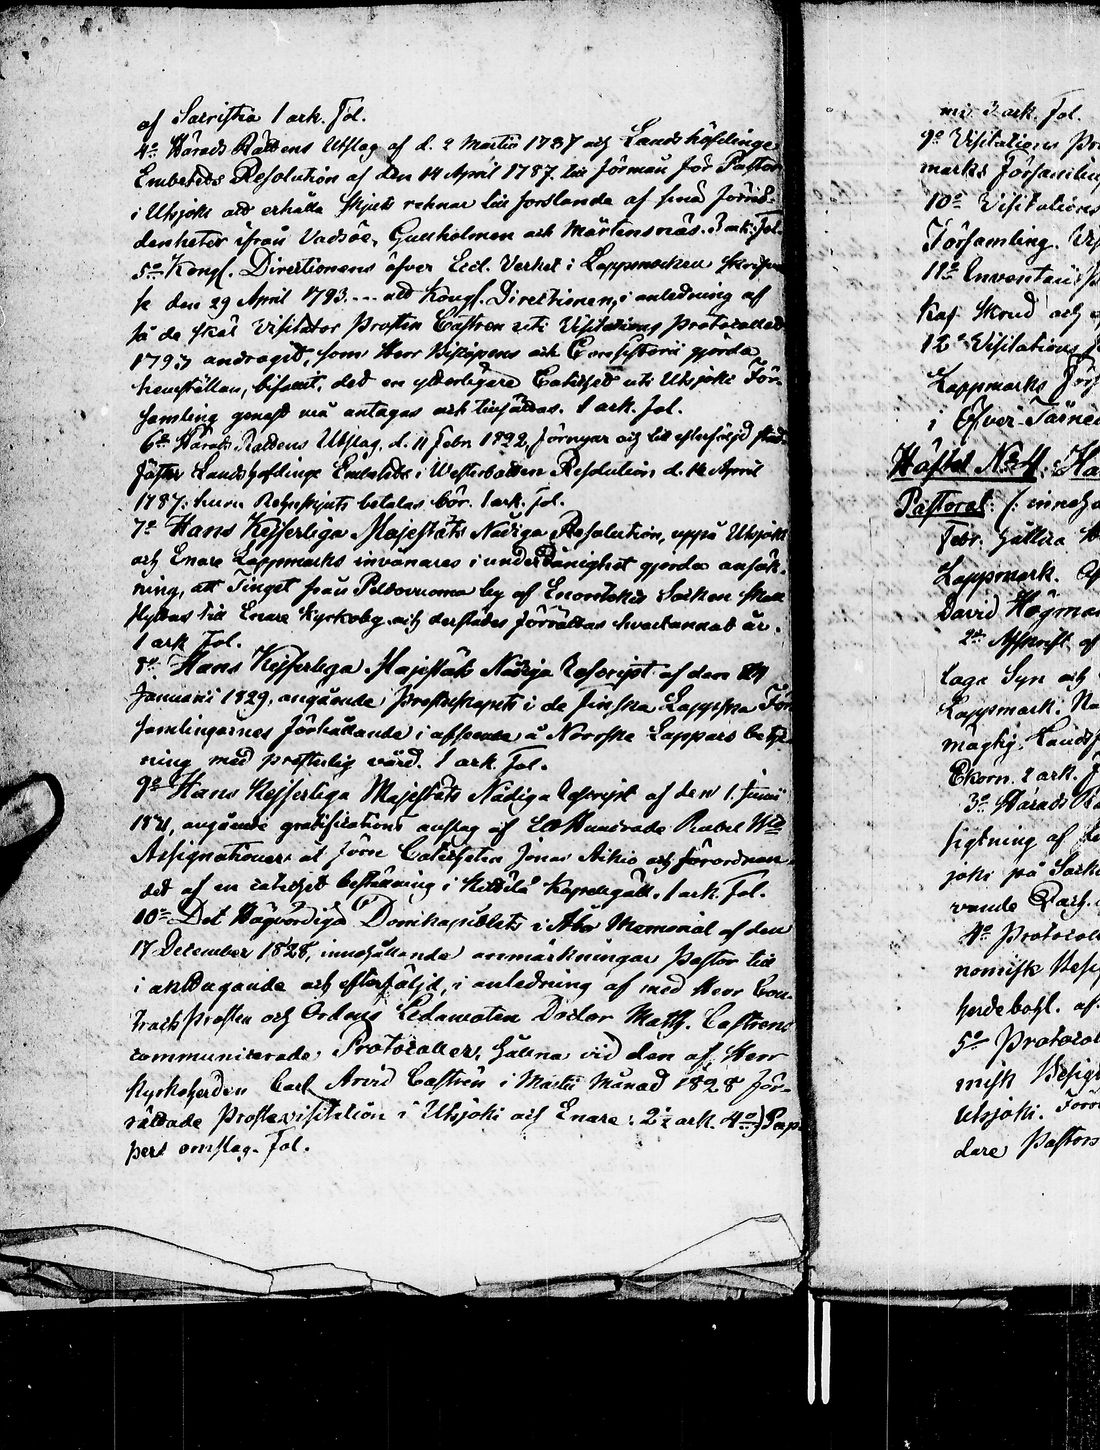 af Sacristia 1 ark. Fol.
4o Härads Rättens Utslag af d. 2 Martii 1787 och Landshöfdinge
Embetets Resolution af den 14 April 1787. till förmån för Pastor
i Utsjoki att erhålla skjuts rehnar till forslande af små förnö-
denheter ifrån Vadsöe, Gullholmen och Mårtensnäs. 3 ark. Fol.
5o Kongl. Directionens öfver Eccl. Verket i Lappmarken skrifvel
se den 29 April 1793 ... att Kongl. Directionen, i anledning af
så de skäl Visitator Prosten Castrén uti Visitations Protocollet
1793 andragit, som Herr Biskopens och Consistorii gjorda
hemställan, bifallit, det en ytterligare Catechet uti Utsjoki För-
samling genast må antagas och tillsättas. 1 ark. fol.
6o Härads Rättens Utslag, d. 11 Febr. 1822, förnyar och till efterföljd stad-
fäster Landshöfdinge Embetets i Westerbotten Resolution d. 14 April
1787: huru Rehnskjuts betalas bör. 1 ark. Fol.
7o Hans Kejserliga Majestäts Nådiga Resolution, uppå Utsjoki
och Enare Lappmarks invånares i underdånighet gjorda ansök-
ning, att Tinget från Peldovuoma by af Enontekis Socken skall
flyttas till Enare Kyrkoby och derstädes förrättas hvartannat år.
1 ark Fol.
8o Hans Kejserliga Majestäts Nådiga Rescript af den
Januarii 1829, angående Presterskapets i de finska Lappska För
samlingarnes förhållande i afseende å Norrska Lappars betje-
ning med presterlig vård. 1 ark. Fol.
9o Hans Kejserliga Majestäts Nådiga Rescript af den 1. Junii
1831, angående gratifications anslag af Ett Hundrade Rubel
Assignationer åt förre Catecheten Jonas Aikio och förordnan-
det af en catechet beställning i Kittilä Kapellgäll. 1 ark. Fol.
10o Det Högvördiga Domkapitlets i Åbo Memorial af den
17 December 1828, innehållande anmärkningar Pastor till
iakttagande och efterföljd, i anledning af med Herr Con-
tracts Prosten och Ordens Ledamoten Doctor Matth. Castrens
communicerade Protocoller, hållna vid den af Herr
Kyrkoherden Carl Arvid Castrén i Martii Månad 1828 för-
rättade Prostevisitation i Utsjoki och Enare: 2 1/2 ark. 4o) Pap-
pers omslag. Fol.
3 ark. Fol.
9o Visitations Pro
marks Församling
10o Visitations
Församling. Uts
11o Inventarii
Kaf. Skrud och
12o Visitations
Lappmarks För
i Öfver-Torneå
Häftet No 4. Ha
Pastorat: (: inneha
Febr. hållna
Lappmark. Af
David Högman
2o Afskrift af
Laga Syn och
Lappmark.
mägtig Landsf
Ekorn. 2 ark. f
3o Härads Rä
sigtning af
joki på Socke
varude
4o Protocoll
nomisk Besig
herdebohl. af.
5o Protocol
misk Besigt
Utsjoki. Förr
dare Pastors